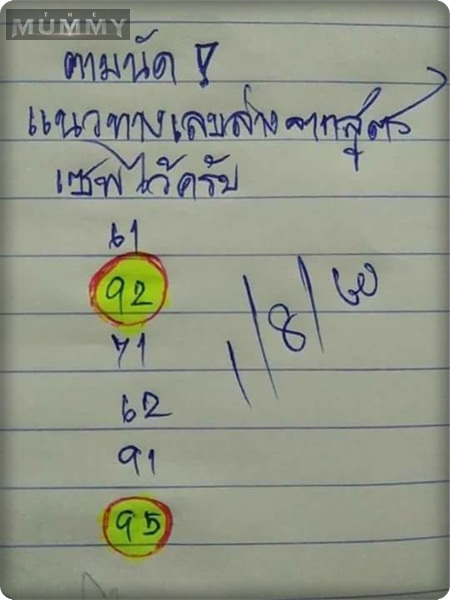 THE
MUMMY
ตามนัด !
แนวทางเลขล่างจากสูตร
เซฟไว้ครับ
61
92
71
62
91
95
1/8/60